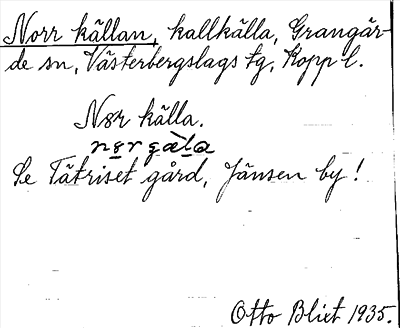 Norr källan, kallkälla, Grangär-
de sn, Västerbergslags tg, Kopp l.
Nør källa.
nørgàla
Se Tätriset gård, Jänsen by!
Otto Blixt 1935.